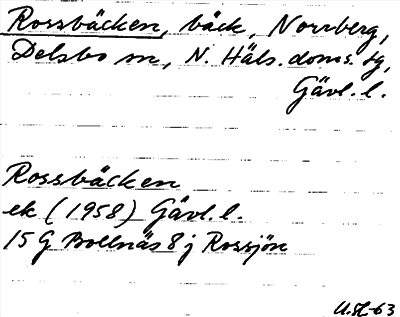 Rossbäcken, bäck, Norrberg,
Delsbo sn, N. Häls. doms. tg,
Gävl. l.
Rossbäcken
ek (1958) Gävl. l.
15 G Bollnäs 8 j Rossjön